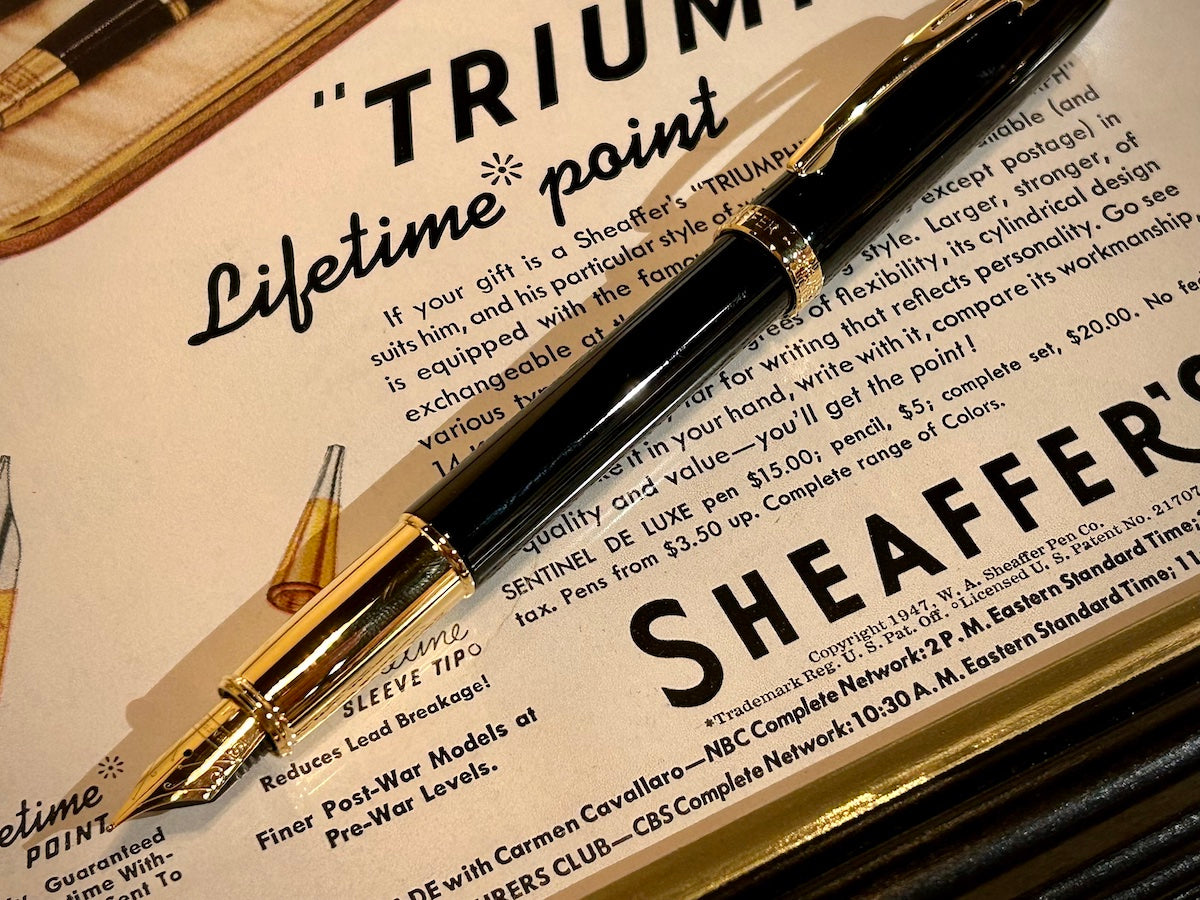 "TRIUM
Lifetime* point
If your gift is a Sheaffer's "TRIUMPH
suits him, and his particular style of
is equipped with the
exchangeable at
various
14
(and
except postage) in
style. Larger, stronger, of
of flexibility, its cylindrical design
for writing that reflects personality. Go see
it in your hand, write with it, compare its workmanship,
quality and value—you'll get the point!
SENTINEL DE LUXE pen $15.00; pencil, $5; complete set, $20.00. No
tax. Pens from $3.50 up. Complete range of Colors.
SHEAFFER'S
Copyright 1947, W. A. Sheaffer Pen Co.
*Trademark Reg. U. S. Pat. Off. °Licensed U. S. Patent No. 21707
NBC Complete Network: 2 P. M. Eastern Standard Time;
with Carmen Cavallaro—
CLUB—CBS Complete Network: 10:30 A. M. Eastern Standard Time; 11
SLEEVE TIP°
Reduces Lead Breakage!
Finer Post-War Models at
Pre-War Levels.
etime*
POINT
Guaranteed
time With-
To